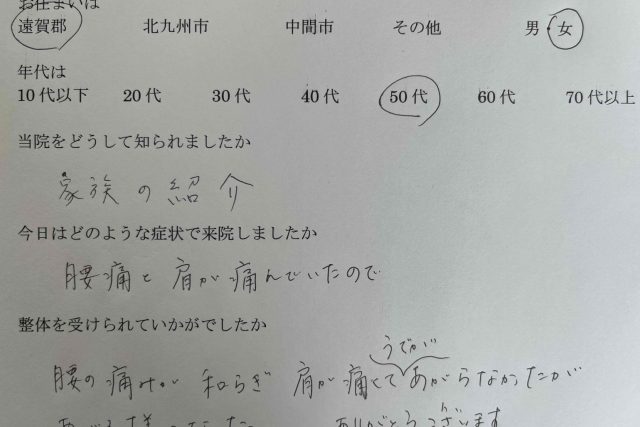 お住まいは
遠賀郡 北九州市 中間市 その他 男・女
年代は
10代以下 20代 30代 40代 50代 60代 70代以上
当院をどうして知られましたか
家族の紹介
今日はどのような症状で来院しましたか
腰痛と肩が痛んでいたので
整体を受けられていかがでしたか
うでが
腰の痛みが和らぎ肩が痛くてあがらなかったが
ありがとうございます